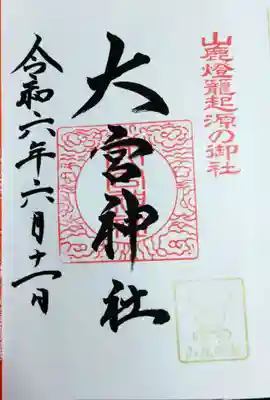 山鹿燈籠起源の御社
大宮神社
令和六年六月十一日